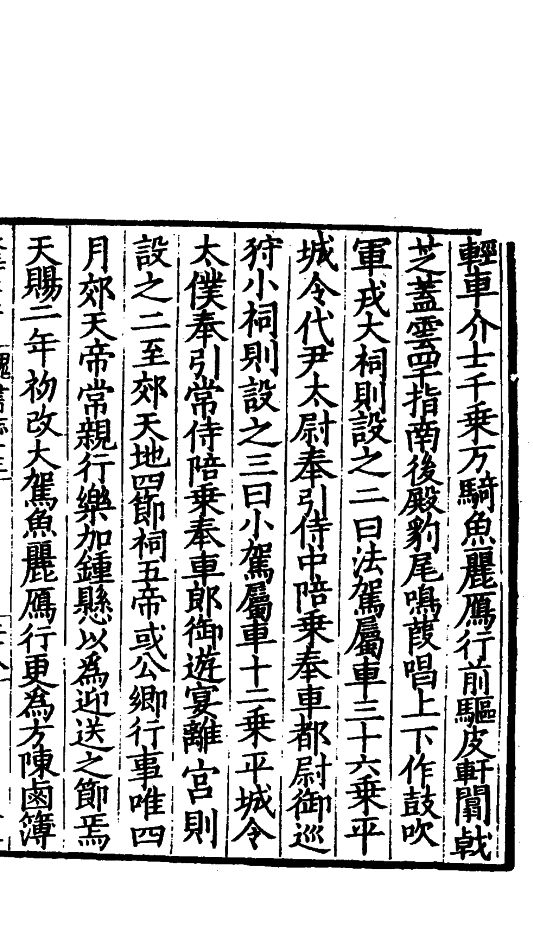 輕車介士千乘万騎魚麗鴈行前驅皮軒闟戟
芝蓋雲罕指南後殿豹尾鳴葭唱上下作鼓吹
軍戎大祠則設之二曰法駕屬車三十六乘平
城令代尹太尉奉引侍中陪乘奉車都尉御巡
狩小祠則設之三曰小駕屬車十二乘平城令
太僕奉引常侍陪乘奉車郎御遊宴離宮則
設之二至郊天地四節祠五帝或公卿行事唯四
月郊天帝常親行樂加鍾懸以為迎送之節焉
天賜二年初改大駕魚麗鴈行更為方陳鹵簿